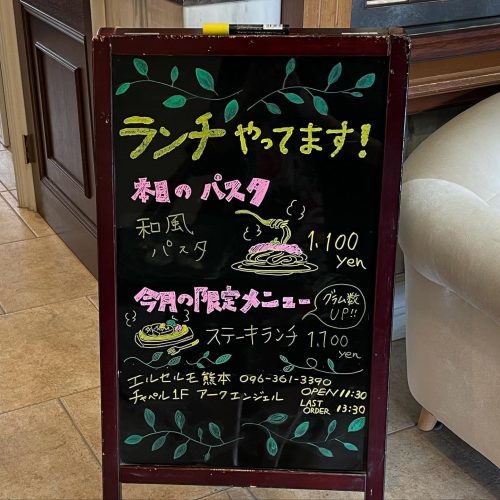 ランチ やってます!
本日の パスタ
和風
パスタ
1,100
yen
今月の限定メニュー
グラム数
UP!!
ステーキランチ 1,700
yen
エルセルモ熊本 096-361-3390
チャペル1F アークエンジェル
OPEN 11:30
LAST
ORDER 13:30